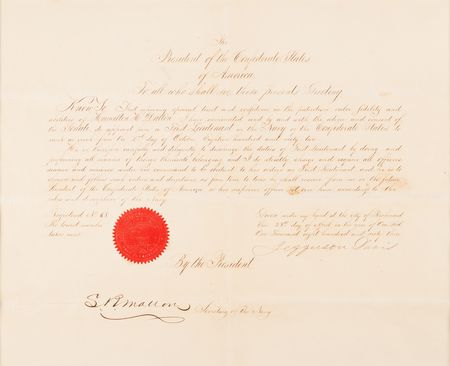 The
President of the Confederate States
of America.
To all who shall see these presents Greeting
Know Ye That reposing special trust and confidence in the patriotism valor fidelity and
abilities of Hamilton H. Dalton I have nominated and by and with the advice and consent of
the Senate do appoint him a First Lieutenant in the Navy of the Confederate States to
rank as such from the day of October Eighteen hundred and sixty two
He is therefore carefully and diligently to discharge the duties of First Lieutenant by doing and
performing all manner of things thereunto belonging and I do strictly charge and require all officers
seamen and marines under his command to be obedient to his orders as First Lieutenant and he is to
observe and follow such orders and directions as from time to time he shall receive from me or the future
President of the Confederate States of America or his superior officer according to the
rules and discipline of the Navy
Registered No 68
Given under my hand at the city of Richmond
this 23d day of in the year of our Lord
one thousand eight hundred and sixty
Jefferson Davis
By the President
S. R. Mallory
Secretary of the Navy